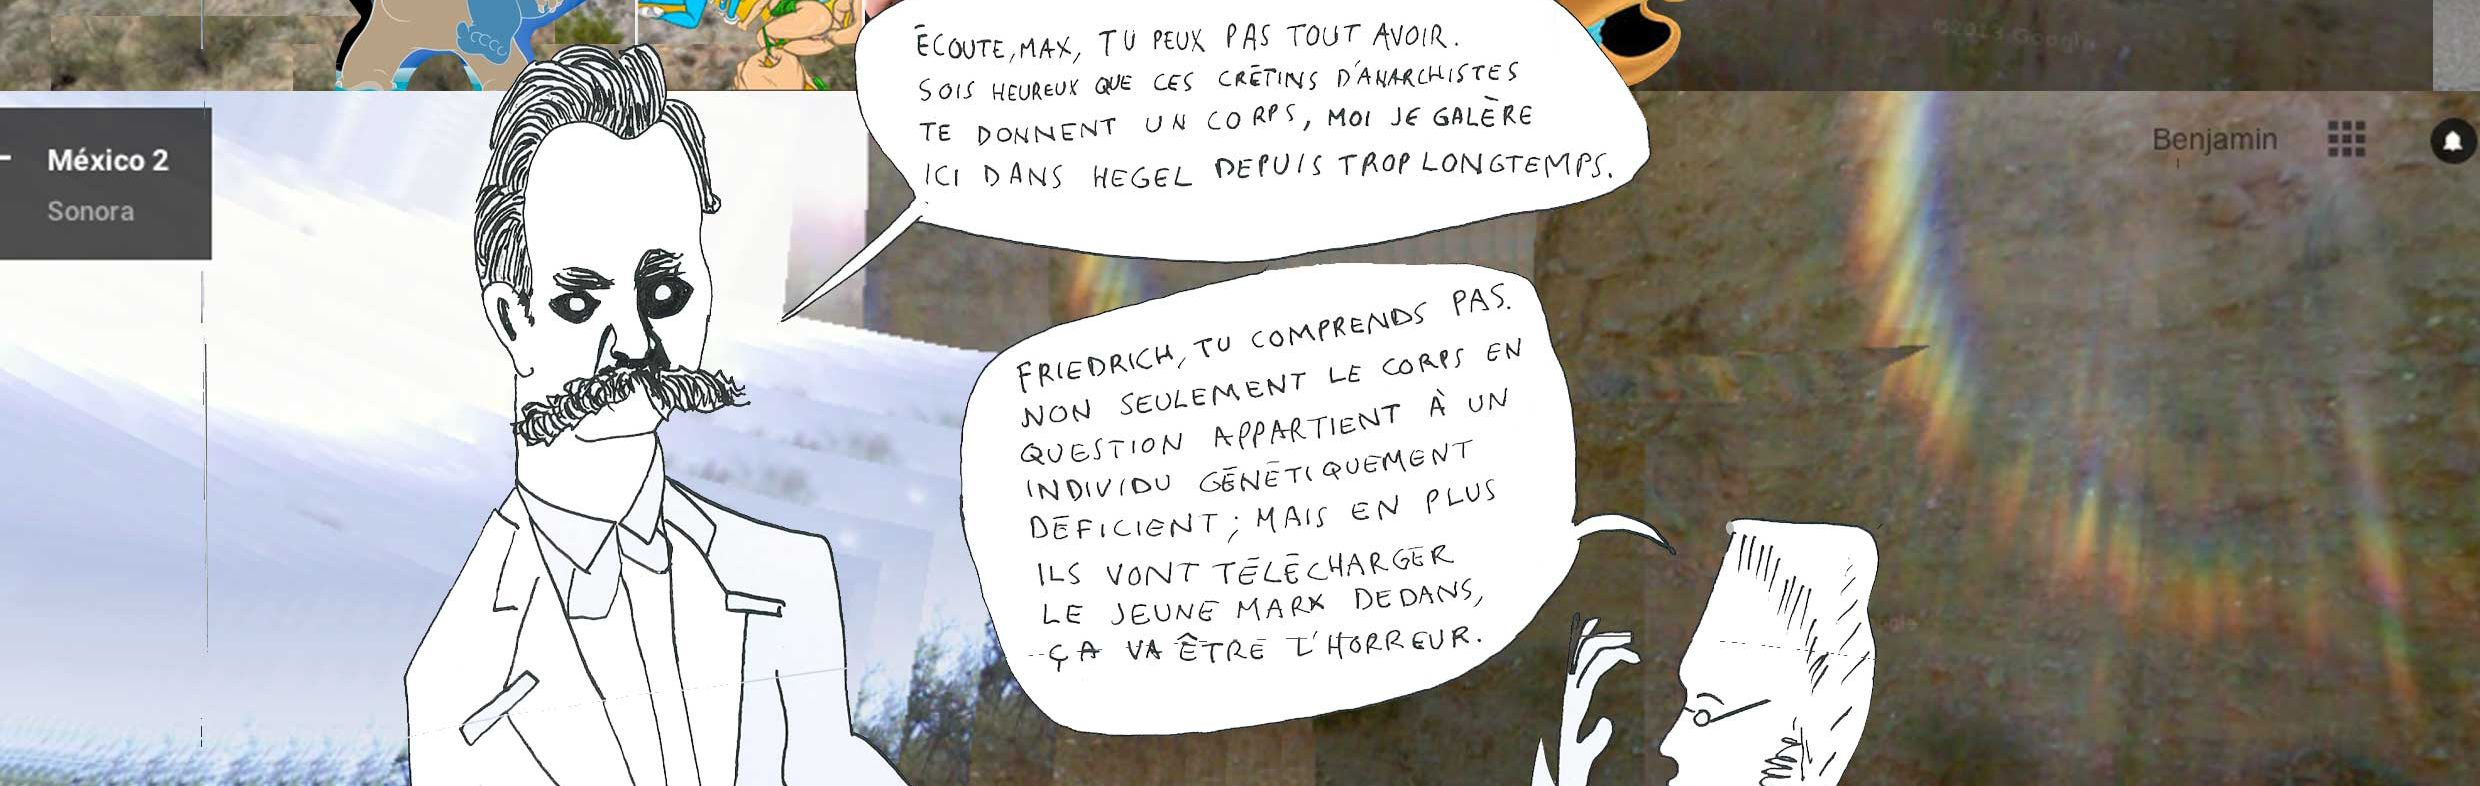 ©2013 Google
ÉCOUTE, MAX, TU PEUX PAS TOUT AVOIR.
SOIS HEUREUX QUE CES CRÉTINS D'ANARCHISTES
TE DONNENT UN CORPS, MOI JE GALÈRE
ICI DANS HEGEL DEPUIS TROP LONGTEMPS.
México 2
Sonora
Benjamin
FRIEDRICH, TU COMPRENDS PAS.
NON SEULEMENT LE CORPS EN
QUESTION APPARTIENT À UN
INDIVIDU GÉNÉTIQUEMENT
DÉFICIENT; MAIS EN PLUS
ILS VONT TÉLÉCHARGER
LE JEUNE MARX DEDANS,
ÇA VA ÊTRE L'HORREUR.